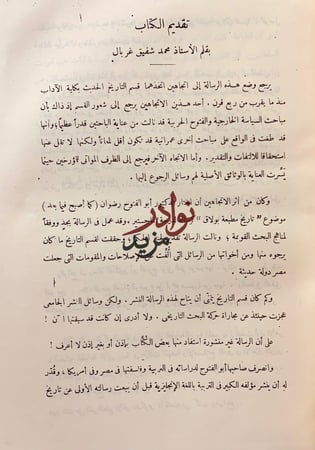 تقديم الكتاب
بقلم الأستاذ محمد شفيق غربال
يرجع وضع هذه الرسالة إلى اتجاهين اتخذهما قسم التاريخ الحديث بكلية الآداب
منذ ما يقرب من ربع قرن . أحد هذين الاتجاهين يرجع إلى شعور القسم إذ ذاك بأن
مباحث السياسة الخارجية والفتوح الحربية قد نالت من عناية الباحثين قدراً عظيما وأنها
قد طغت فى الواقع على مباحث أخرى عمرانية قد تكون أقل لمعاناً ولكنها لا تقل عنها
استحقاقا للالتفات والتقدير . وأما الاتجاه الآخر فيرجع إلى الظرف المواتى لمؤرخين حينما
يسّرت العناية بالوثائق الأصلية لهم وسائل الرجوع إليها .
وكان من أثر الاتجاهين أن اختار الدكتور أبو الفتوح رضوان (كما أصبح فيما بعد)
موضوع « تاريخ مطبعة بولاق » لرسالة الماجستير . وقد عمل فى الرسالة بجد ووفقاً
لمناهج البحث القويمة ؛ ونالت الرسالة تقدير وحققت لقسم التاريخ ما كان
يرجوه منها ومن أخواتها من الرسائل التى ألّفت عن الإصلاحات والمقومات التى جعلت
مصر دولة حديثة .
وكم كان قسم التاريخ يتمنى أن يتاح لهذه الرسالة النشر . ولكن وسائل النشر الجامعى
عجزت حينئذ عن مجاراة حركة البحث التاريخى . ولا أدرى إن كانت قد سبقتها الآن !
على أن الرسالة غير منشورة استفاد منها بعض الكتّاب بإذن أو بغير إذن لا أعرف !
وانصرف صاحبها أبو الفتوح لدراساته فى التربية وفلسفتها فى مصر وفى أمريكا ، وقدّر
له أن ينشر مؤلفه الكبير فى التربية باللغة الإنجليزية قبل أن يبعث رسالته الأولى عن تاريخ
نوادر
مزيد